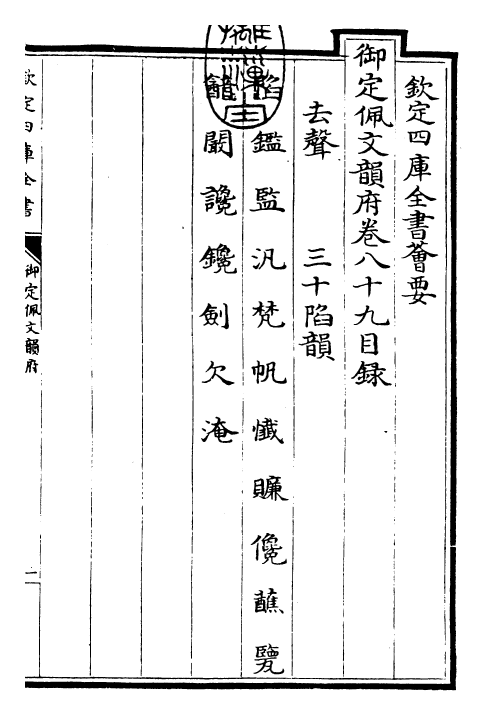 欽定四庫全書薈要
御定佩文韻府卷八十九目録
去聲　三十陷韻
陷鑑監汎梵帆懺賺儳蘸覽
闞讒鑱劍欠淹
欽定四庫全書
御定佩文韻府
一